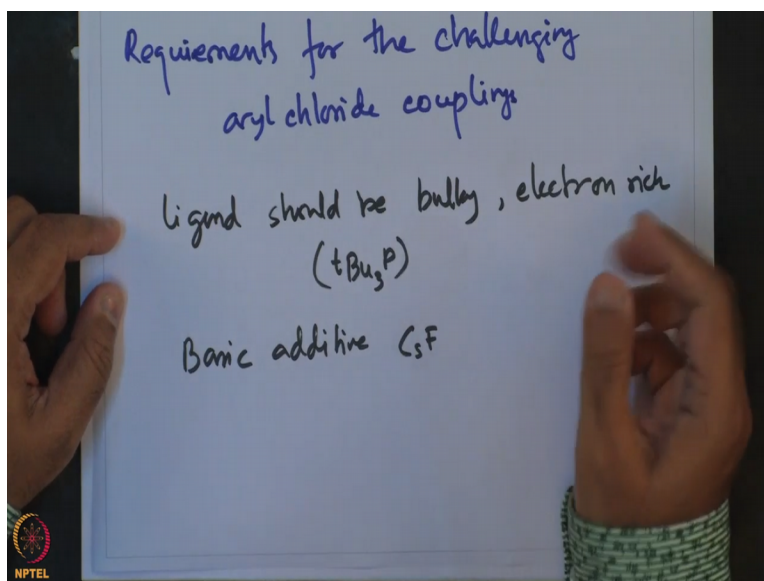 Requirements for the challenging
aryl chloride couplings
ligand should be bulky, electron rich
(tBu₃P)
Basic additive CsF
NPTEL